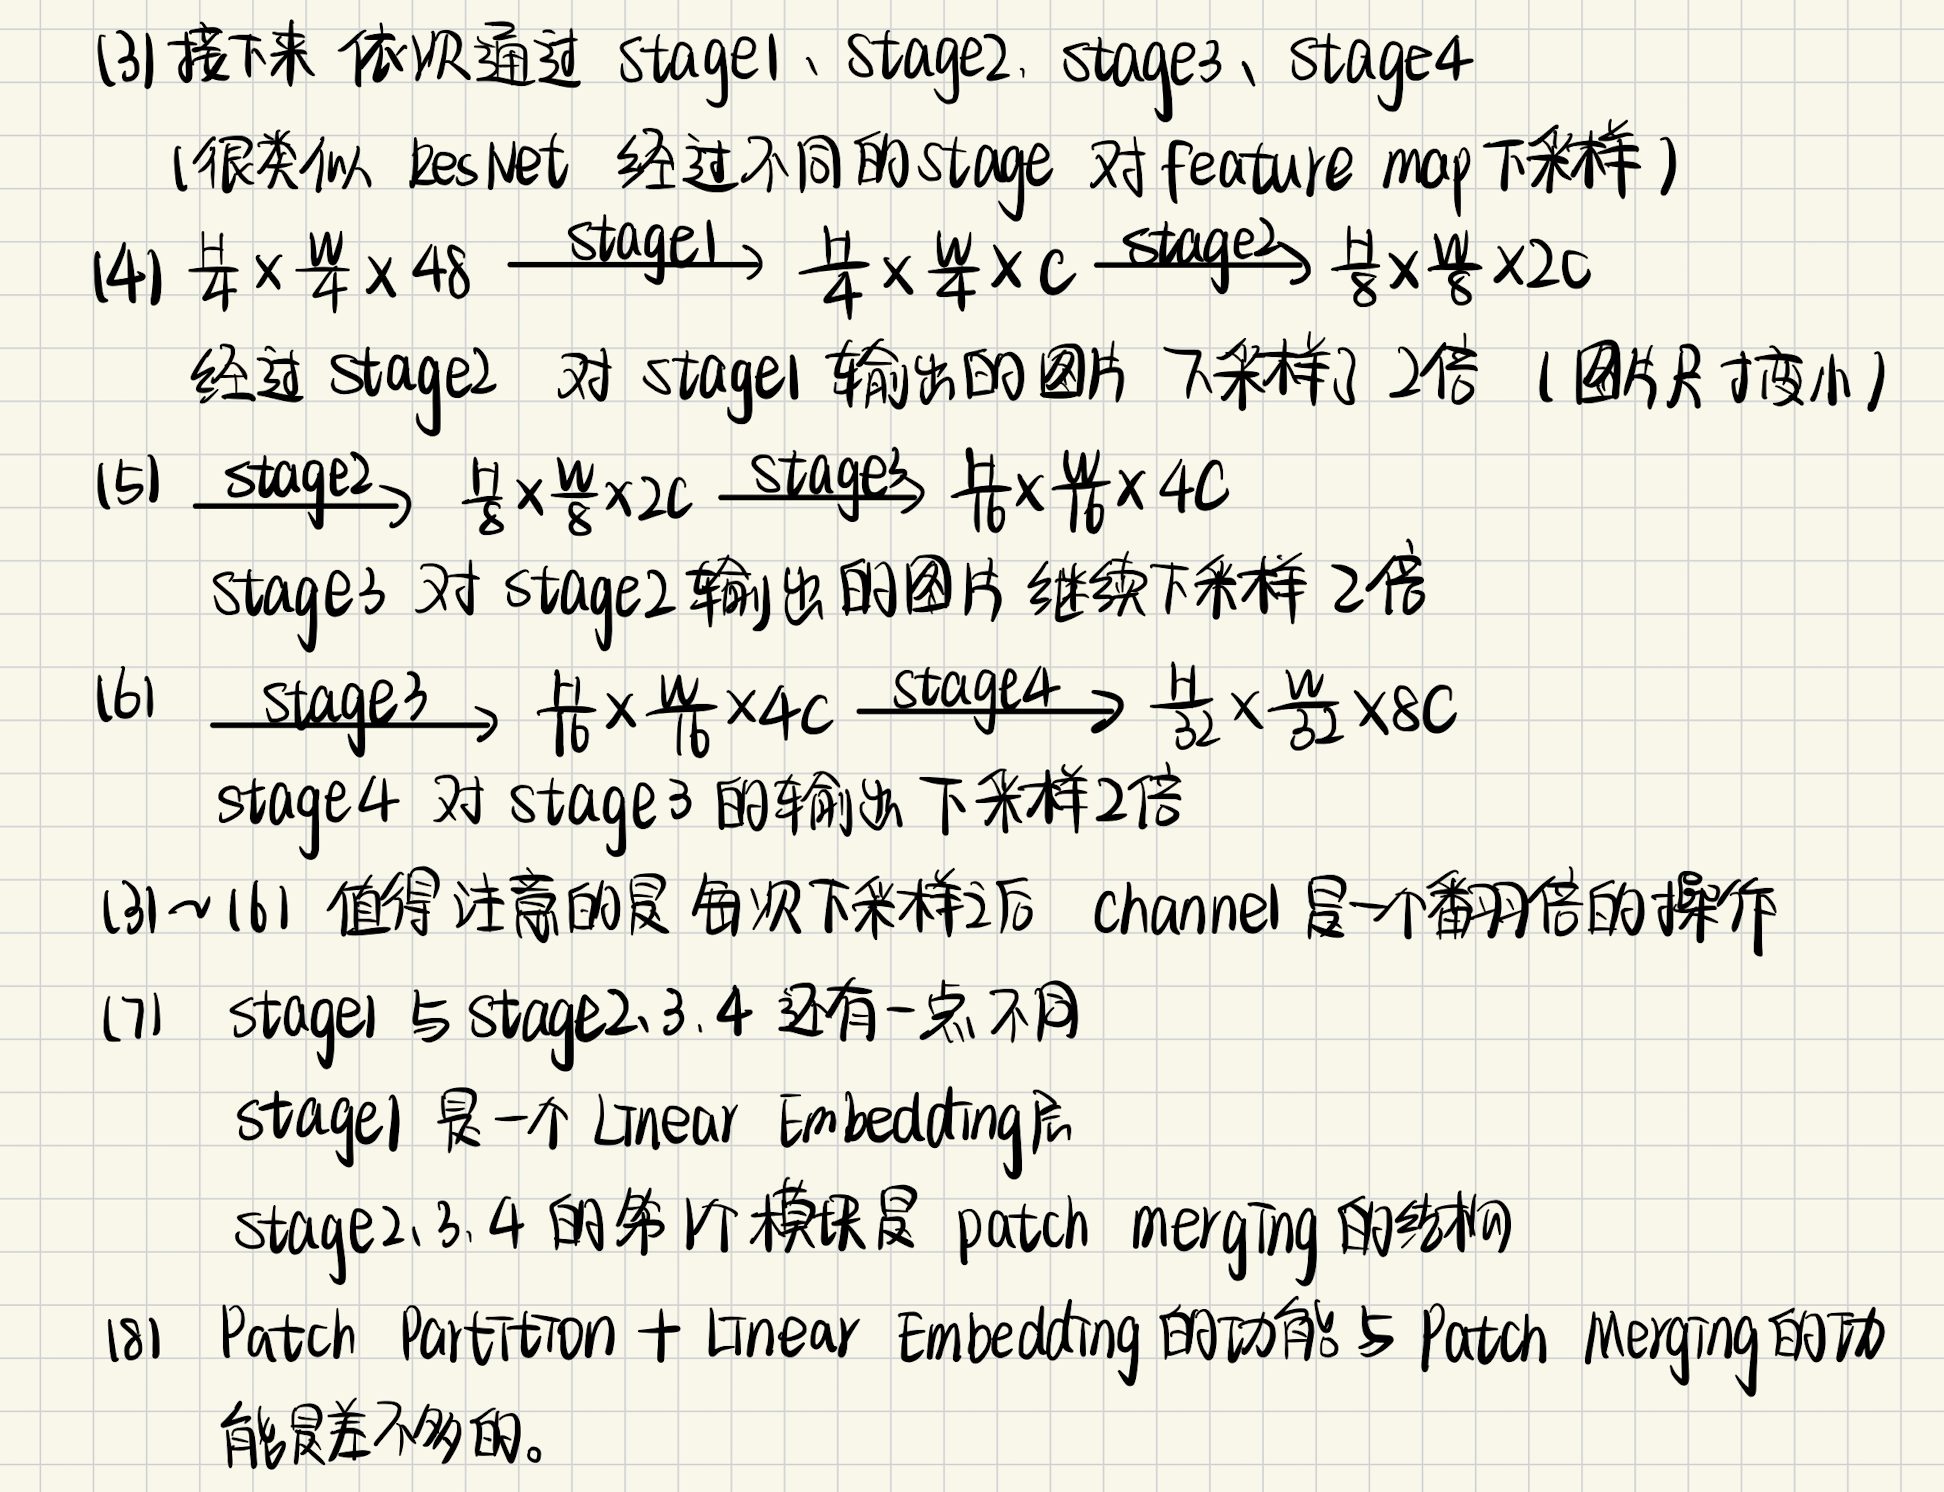 (3) 接下来 依次通过 stage1、stage2、stage3、stage4
(很类似 ResNet 经过不同的stage 对feature map下采样)
(4) H/4 × W/4 × 48 —stage1→ H/4 × W/4 × C —stage2→ H/8 × W/8 × 2C
经过 stage2 对 stage1 输出的图片 下采样了 2倍 (图片尺寸变小)
(5) —stage2→ H/8 × W/8 × 2C —stage3→ H/16 × W/16 × 4C
stage3 对 stage2输出的图片 继续下采样 2倍
(6) —stage3→ H/16 × W/16 × 4C —stage4→ H/32 × W/32 × 8C
stage4 对 stage3 的输出 下采样2倍
(3)~(6) 值得注意的是 每次下采样之后 channel 是一个番羽倍的操作
(7) stage1 与 stage2、3、4 还有一点不同
stage1 是一个 Linear Embedding层
stage2、3、4 的第1个模块是 patch merging 的结构
(8) Patch Partition + Linear Embedding 的功能与 Patch Merging 的功
能是差不多的。